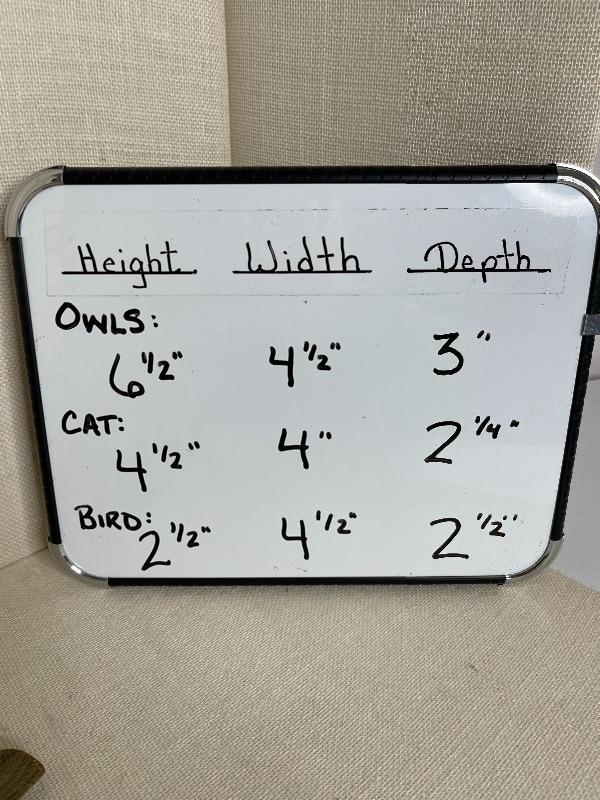 Height Width Depth
OWLS:
6 1/2" 4 1/2" 3"
CAT:
4 1/2" 4" 2 1/4"
BIRD:
2 1/2" 4 1/2" 2 1/2"